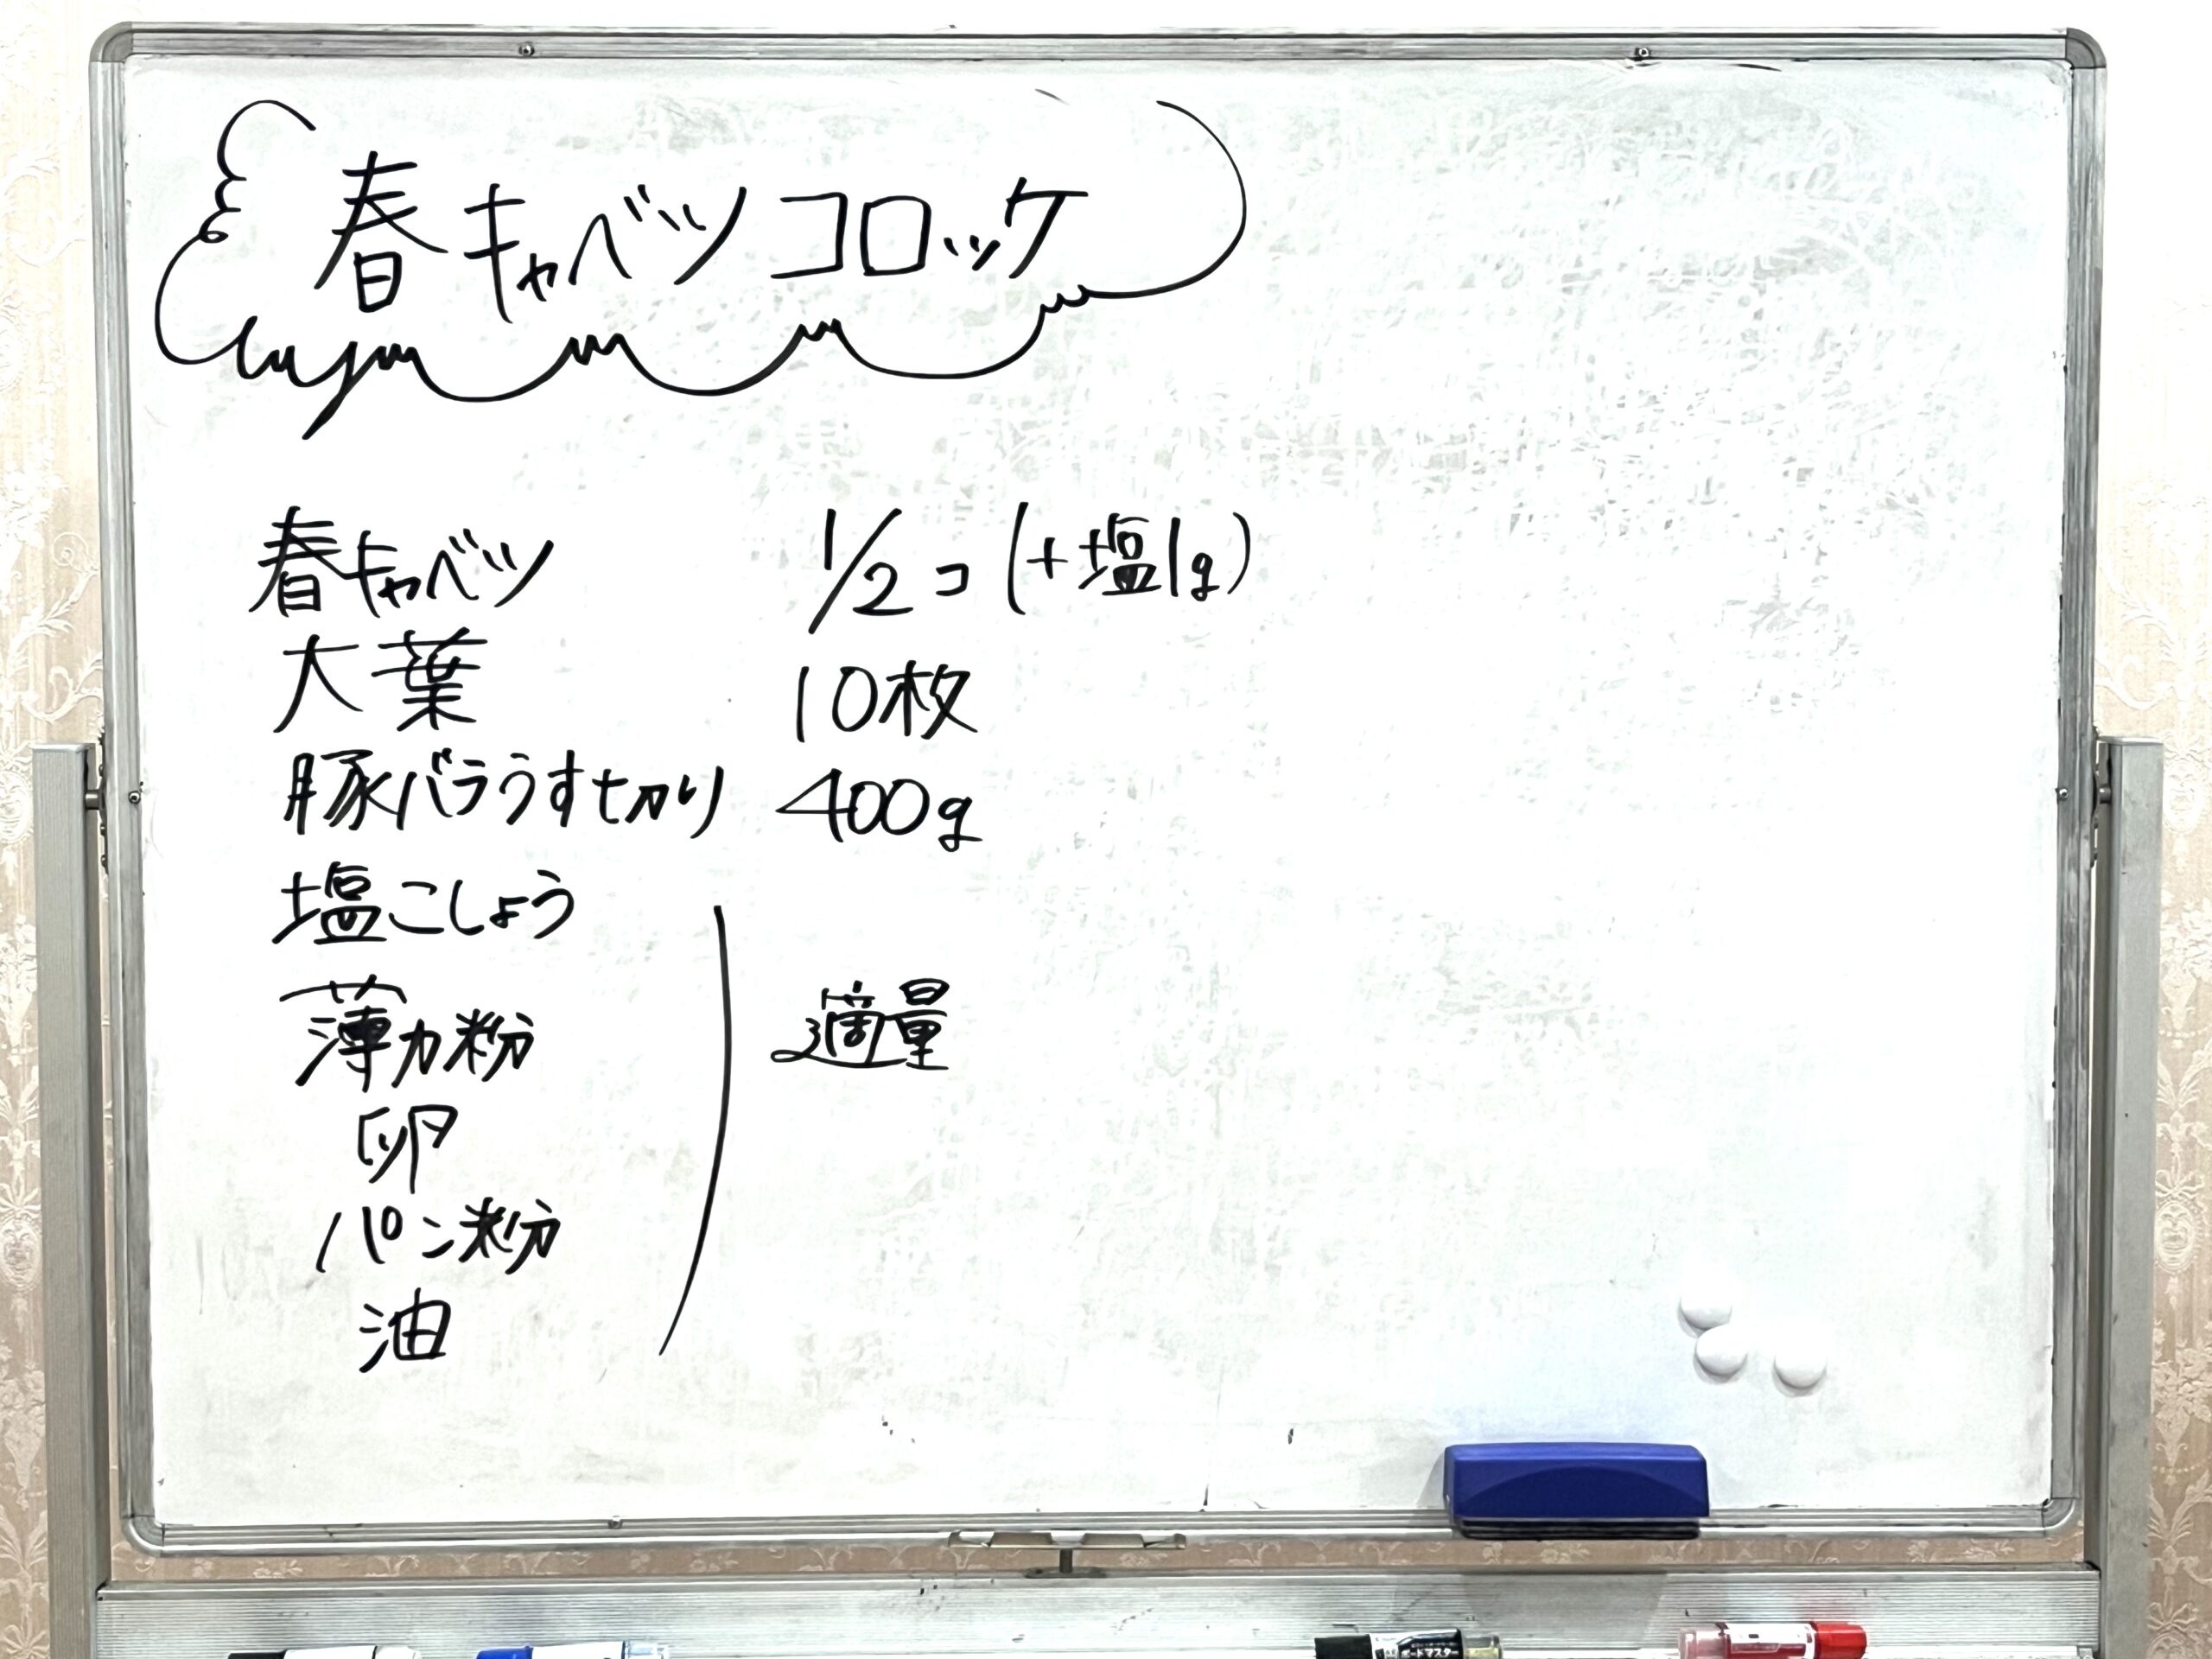 春キャベツコロッケ
春キャベツ 1/2コ(+塩1g)
大葉 10枚
豚バラうす切り 400g
塩こしょう
薄力粉 適量
卵
パン粉
油
ボードマスター